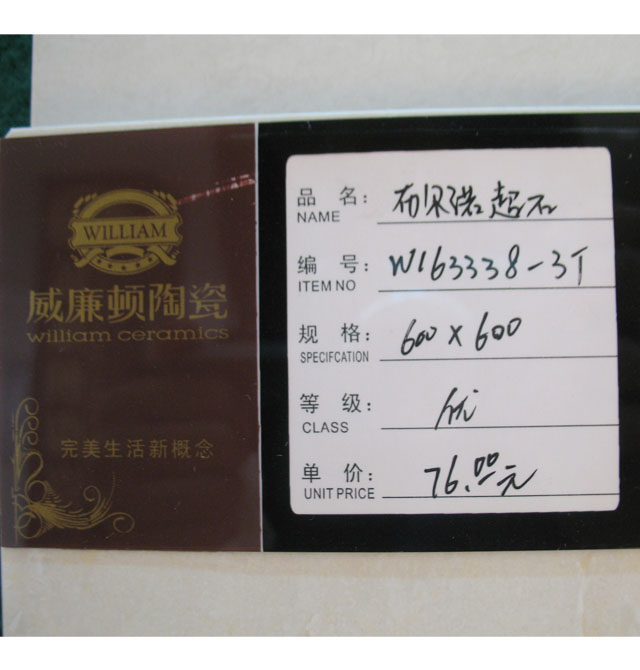 WILLIAM
威廉顿陶瓷
william ceramics
完美生活新概念
品 名: 布兰诺超石
NAME
编 号: W163338-3T
ITEM NO
规 格: 600 x 600
SPECIFCATION
等 级: 优
CLASS
单 价: 76.00元
UNIT PRICE